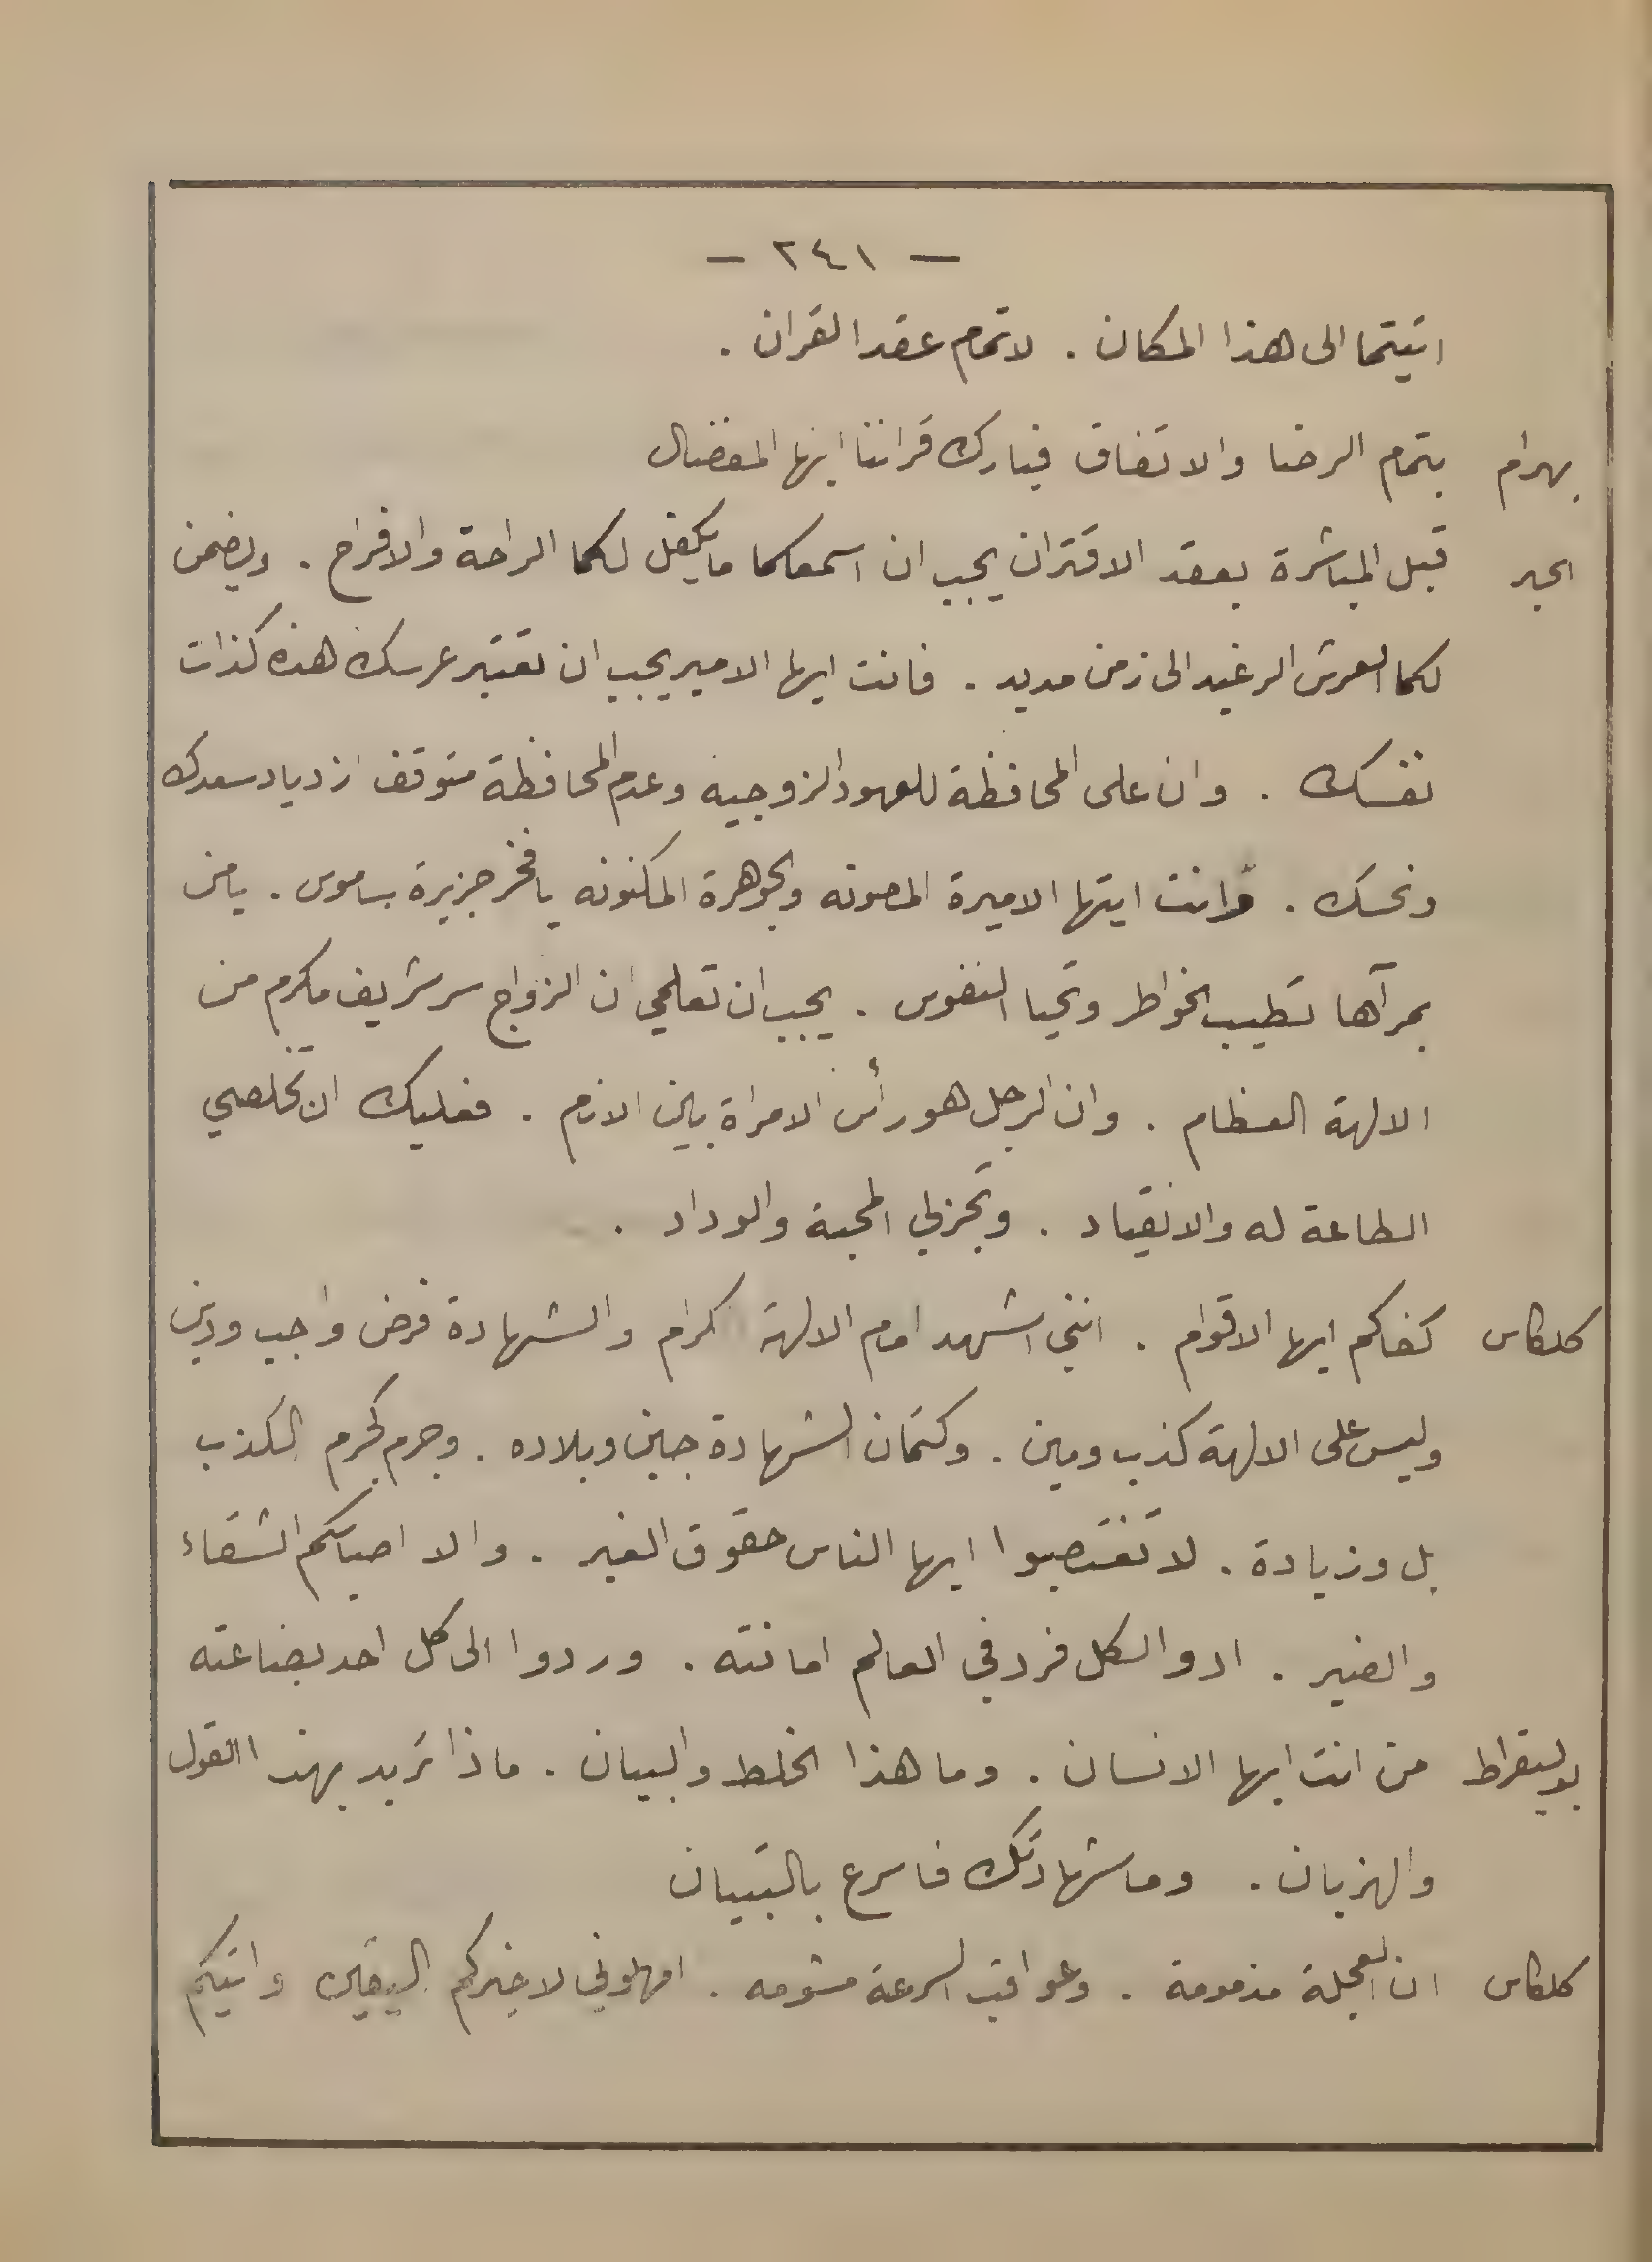 — ٢٤١ —
اتيتما الى هذا المكان . لاتمام عقد القران .
بهرام بتمام الرضا والاتفاق فبارك قراننا ايها المفضال
الحبر قبل المباشرة بعقد الاقتران يجب ان اسمعكما ما يكفل لكما الراحة والافراح . ويضمن
لكما العرش الرغيد الى زمن مديد . فانت ايها الامير يجب ان تعتبر عرسك هذه كذات
نفسك . وان على المحافظة للعهود الزوجيه وعدم المحافظة متوقف ازدياد سعدك
ونحسك . وانت ايتها الاميرة المصونه والجوهرة المكنونه يا فخر جزيرة ساموس . يا من
بمرآها تطيب الخواطر وتحيا النفوس . يجب ان تعلمي ان الزواج سر شريف مكرم من
الالهة العظام . وان الرجل هو رأس الامراة بين الانام . فعليك ان تخلصي
الطاعة له والانقياد . وتجزلي المحبة والوداد .
كلكاس كفاكم ايها الاقوام . انني اشهد امام الالهة كرام والشهادة فرض واجب ودين
وليس على الالهة كذب ومين . وكتمان الشهادة جبن وبلاده . وجرم كجرم الكذب
بل وزيادة . لا تغتصبوا ايها الناس حقوق الغير . والا اصابكم الشقاء
والضير . ادوا لكل فرد في العالم امانته . وردوا الى كل احد بضاعته
بوليقراط من انت ايها الانسان . وما هذا الخلط والبيان . ماذا تريد بهذا القول
والهزيان . وما شهادتك فاسرع بالتبيان
كلكاس ان العجلة مذمومة . وعواقب السرعة مشومه . امهلوني لاخبركم اليقين واتيكم